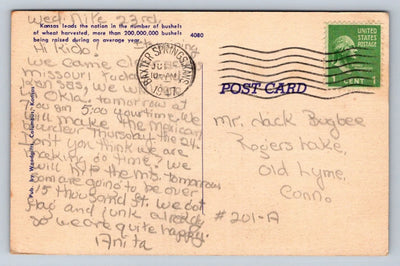 Kansas leads the nation in the number of bushels
of wheat harvested, more than 200,000,000 bushels
being raised during an average year.
4080
Wed. Nite 23rd.
Hi Kids!
We came
missouri today
Kansas, we
Okla. tomorrow at
5:00 yourtime. We
will make the mexican
border Thursday the 24.
Don't you think we are
making do time? We
will hit the mts. tomorrow
Som are going to be over
15 thousand ft. We got
and junk already
so we are quite happy.
Anita
Pub. by Wendgilts, Columbus, Kansas
BAXTER SPRINGS, KANS.
1947
UNITED STATES POSTAGE
1 CENT 1
POST CARD
Mr. Jack Bugbee
Rogers Lake,
Old Lyme,
Conn.
#201-A